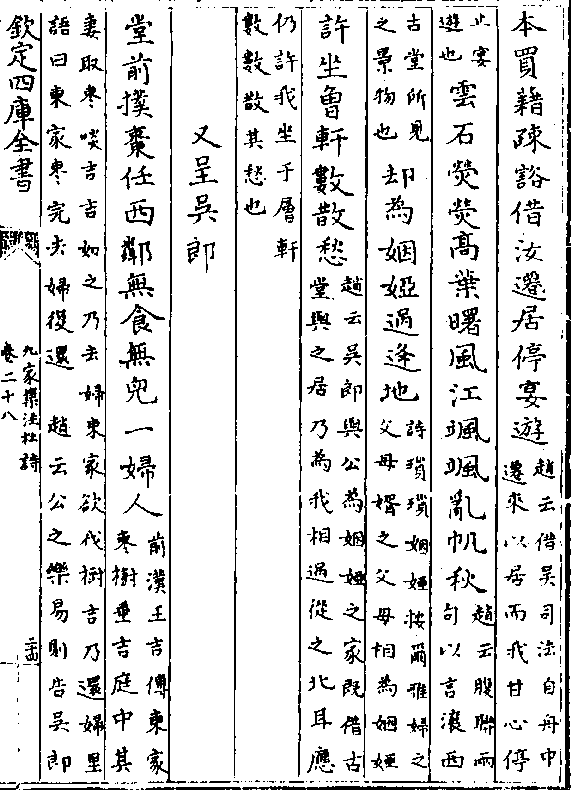 本買藉疎豁借汝遷居停宴遊趙云借吳司法自舟中遷來以居而我甘心停
止宴遊也雲石熒熒高葉曙風江颯颯亂帆秋趙云腹聯兩句以言瀼西
古堂所見之景物也却為姻婭過逢地詩瑣瑣姻婭按爾雅婦之父母壻之父母相為姻婭
許坐曾軒數散愁趙云吳郎與公為姻婭之家既借古堂與之居乃為我相過從之地耳應
仍許我坐于層軒數數散其愁也
又呈吳郎
堂前撲棗任西鄰無食無兒一婦人前漢王吉傳東家棗樹垂吉庭中其
妻取棗啖吉吉知之乃去婦東家欲伐樹吉乃還婦里
語曰東家棗完去婦復還 趙云公之樂易則告吳郎
欽定四庫全書
九家集注杜詩
卷二十八